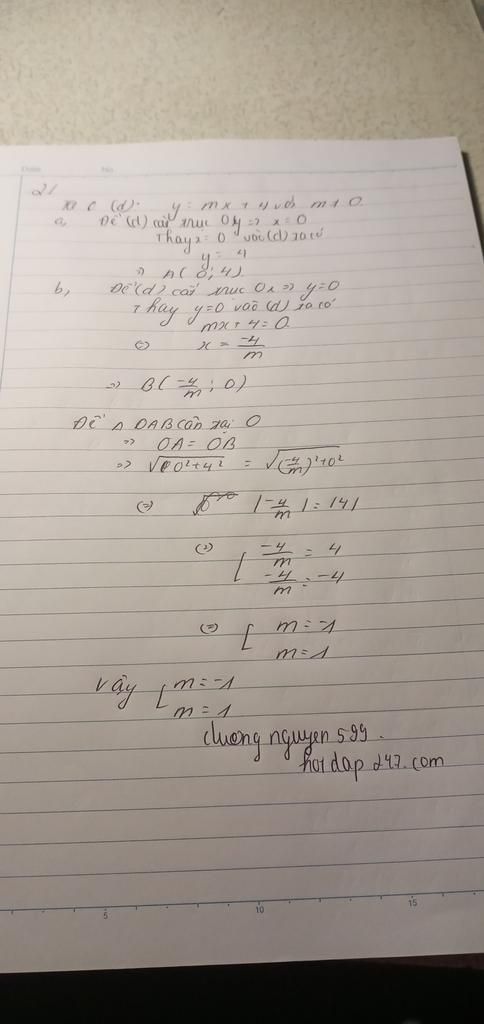 Date No
2/
Ta c (d): y = mx + 4 với m ≠ 0
a, Để (d) cắt trục Oy => x = 0
Thay x = 0 vào (d) ta có
y = 4
=> A( 0; 4)
b, Để (d) cắt trục Ox => y=0
Thay y=0 vào (d) ta có
mx + 4 = 0
<=> x = -4/m
=> B( -4/m ; 0)
Để Δ OAB cân tại O
=> OA = OB
=> √(0²+4²) = √((-4/m)²+0²)
<=> | -4/m | = |4|
<=> [ -4/m = 4
-4/m = -4
<=> [ m = -1
m = 1
Vậy [ m = -1
m = 1
duong nguyen 599.
hoi dap 247. com
5 10 15